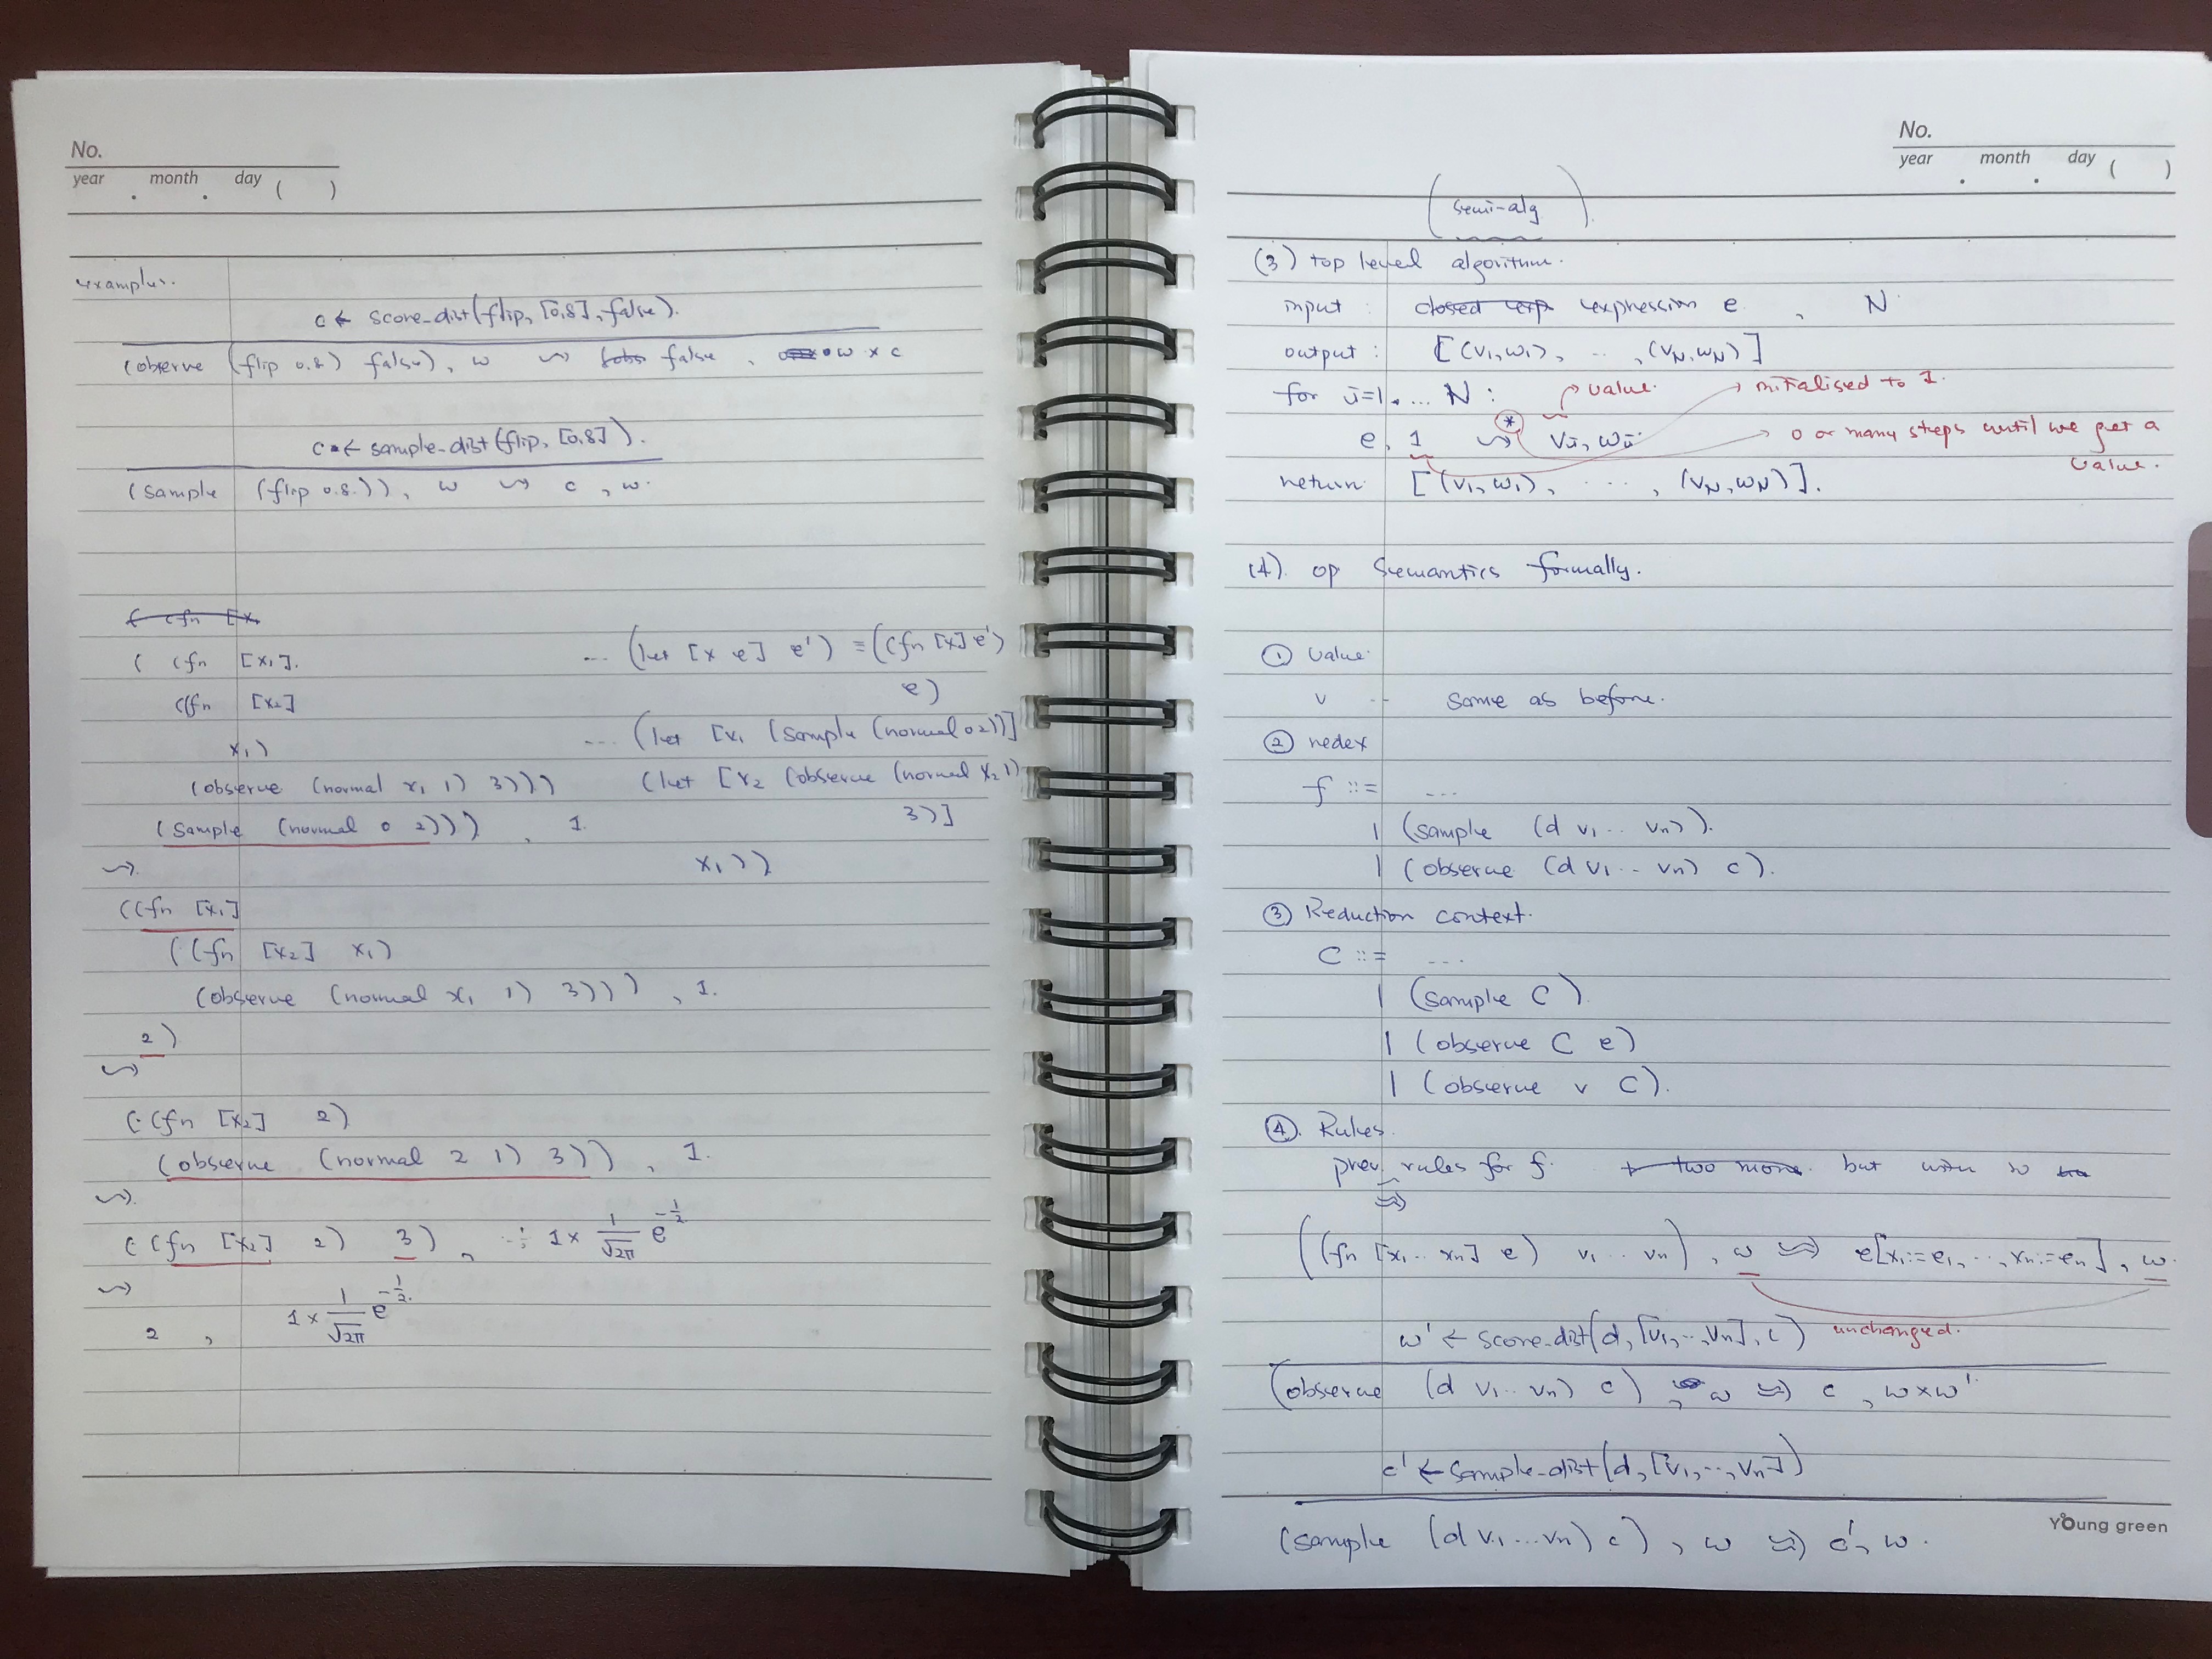 No.
year . month . day ( )
examples.
c ← score-dist(flip, [0.8], false).
(observe (flip 0.8) false), w ⇝ false, w × c
c ← sample-dist(flip, [0.8]).
(sample (flip 0.8)), w ⇝ c, w.
( (fn [x₁
( (fn [x₁].
((fn [x₂]
x₁)
(observe (normal x₁ 1) 3)))
(sample (normal 0 2))) , 1.
... (let [x e] e') ≡ ((fn [x] e')
e)
... (let [x₁ (sample (normal 0 2))]
(let [x₂ (observe (normal x₂ 1)
3)]
x₁))
⇝
((fn [x₁]
((fn [x₂] x₁)
(observe (normal x₁ 1) 3))) , 1.
2)
⇝
((fn [x₂] 2)
(observe (normal 2 1) 3)) , 1.
⇝
((fn [x₂] 2) 3) , 1 × 1/√2π e^-1/2
⇝
2 , 1 × 1/√2π e^-1/2.
No.
year . month . day ( )
(semi-alg).
(3) top level algorithm.
input : closed exp expression e , N
output : [(v₁,w₁), ... , (v_N,w_N)]
for i=1, ... N : value. initialised to 1.
e, 1 ⇝* vᵢ, wᵢ 0 or many steps until we get a
value.
return [(v₁,w₁), ... , (v_N,w_N)].
(4). op semantics formally.
① value.
v -- same as before.
② redex
f ::= ...
| (sample (d v₁ .. vₙ)).
| (observe (d v₁ .. vₙ) c).
③ Reduction context.
C ::= ...
| (sample C).
| (observe C e)
| (observe v C).
④. Rules.
prev. rules for f. + two more. but with w
⇝
((fn [x₁ .. xₙ] e) v₁ .. vₙ) , w ⇝ e[x₁:=e₁, .., xₙ:=eₙ], w.
w' ← score-dist(d, [v₁, .., vₙ], c) unchanged.
(observe (d v₁ .. vₙ) c) , w ⇝ c , w×w'.
c' ← sample-dist(d, [v₁, .., vₙ])
(sample (d v₁ ... vₙ) c) , w ⇝ c', w.
Young green